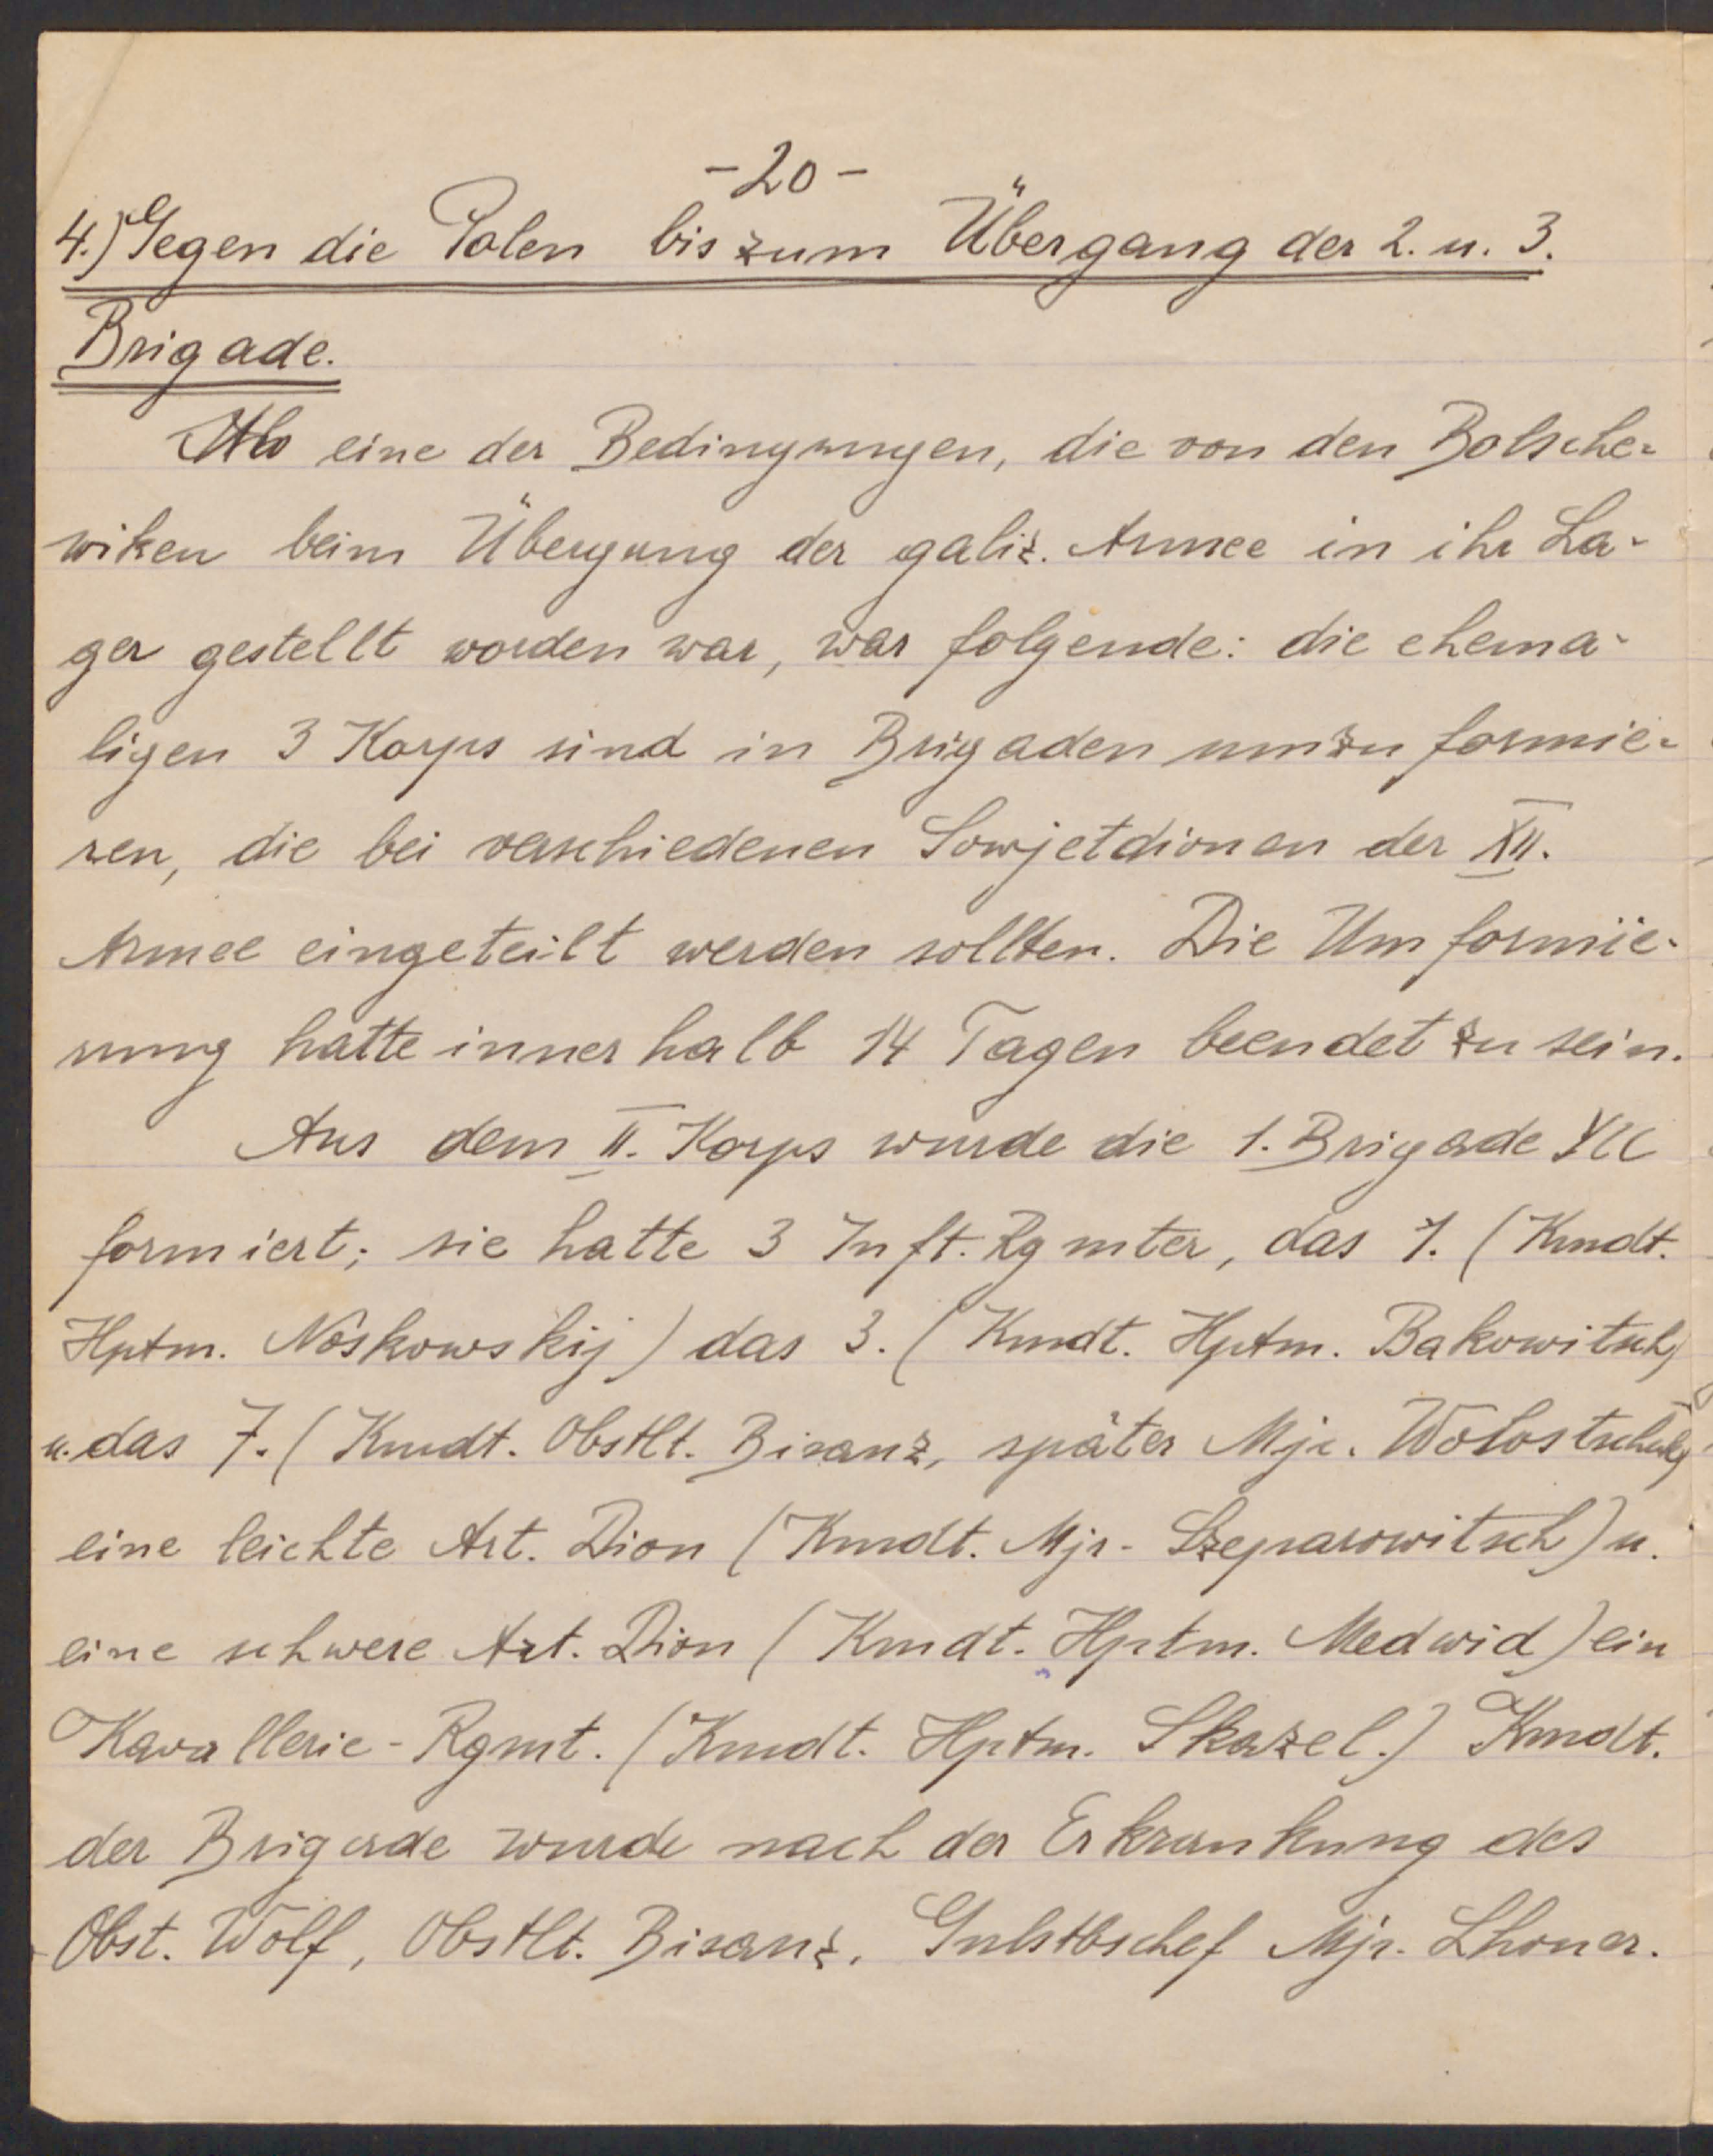 -20-
4.) Gegen die Polen bis zum Übergang der 2. u. 3.
Brigade.
Als eine der Bedingungen, die von den Bolsche-
wiken beim Übergang der galiz. Armee in ihr La-
ger gestellt worden war, war folgende: die ehema-
ligen 3 Korps sind in Brigaden umzuformie-
ren, die bei verschiedenen Sowjetdionen der XII.
Armee eingeteilt werden sollten. Die Umformie-
rung hatte innerhalb 14 Tagen beendet zu sein.
Aus dem II. Korps wurde die 1. Brigade
formiert; sie hatte 3 Inft. Rgmter, das 1. (Kmdt.
Hptm. Noskowskij) das 3. (Kmdt. Hptm. Bakowitsch)
u. das 7. (Kmdt. Obstlt. Bisanz, später Mjr. Wolostschuk)
eine leichte Art. Dion (Kmdt. Mjr. Szeparowitsch) u.
eine schwere Art. Dion (Kmdt. Hptm. Medwid) ein
Kavallerie-Rgmt. (Kmdt. Hptm. Skazel.) Kmdt.
der Brigade wurde nach der Erkrankung des
Obst. Wolf, Obstlt. Bisanz, Gnlstbschef Mjr. Lhoner.